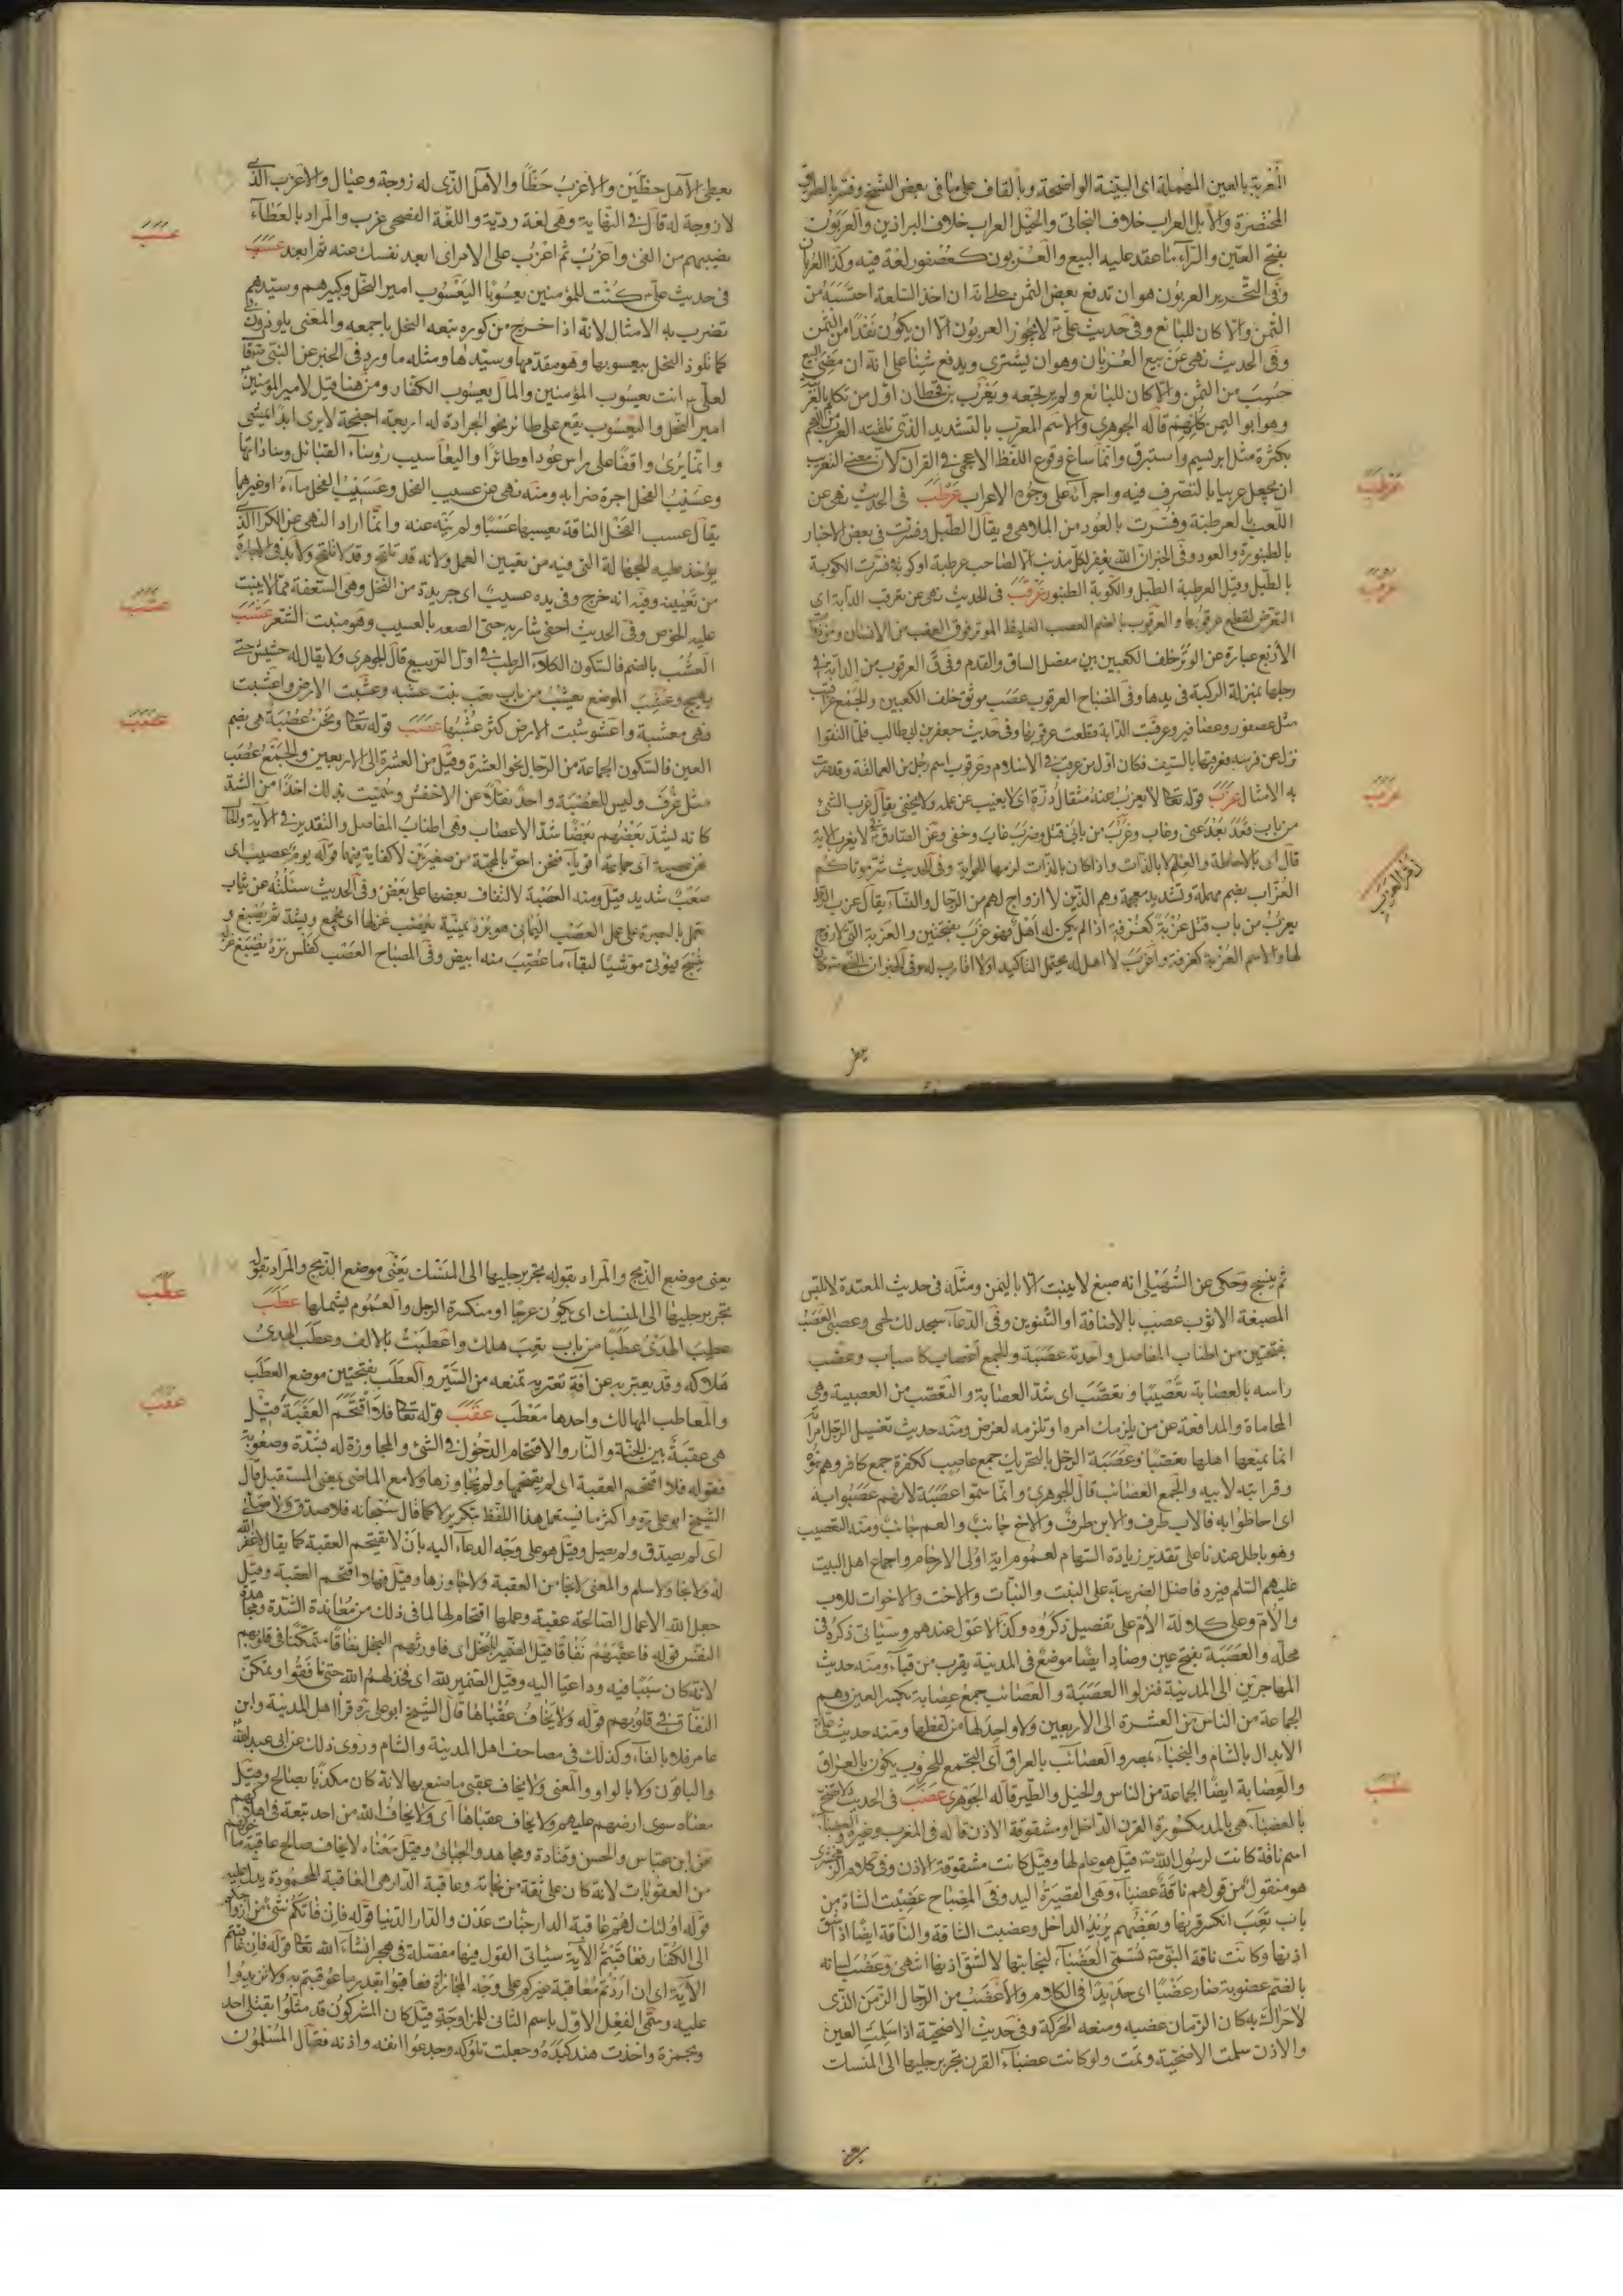 المغربة بالعين المهملة اى البيّنة الواضحة وبالقاف على ما فى بعض النسخ وفسّر بالطرق
المختصرة والابل العراب خلاف البخاتى والخيل العراب خلاف البراذين والعربون
بفتح العين والراء ما عقد عليه البيع والعربون كعصفور لغة فيه وكذا العربان
وفى التحرير العربون هو ان تدفع بعض الثمن على انه ان اخذ السلعة احتسبه من
الثمن والا كان للبائع وفى حديث علىّ لا يجوز العربون الا ان يكون نقدا من الثمن
وفى الحديث نهى عن بيع العربان وهو ان يشترى ويدفع شيئا على انه ان مضى البيع
حسب من الثمن والا كان للبائع ولم يرتجعه ويعرب بن قحطان اول من تكلم بالعربية
وهو ابو اليمن كلهم قاله الجوهرى والاسم المعرب بالتشديد الذى تلقته العرب من العجم
بكثرة مثل ابريسم واستبرق وانما ساغ وقوع اللفظ الاعجمى فى القرآن لان معنى التعريب
ان يجعل عربيا بالتصرف فيه واجرائه على وجوه الاعراب عرطب فى الحديث نهى عن
اللعب بالعرطبة وفسّرت بالعود من الملاهى ويقال الطبل وفسرت فى بعض الاخبار
بالطنبورة والعود وفى الخبر ان الله يغفر لكل مذنب الا لصاحب عرطبة او كوبة وفسرت الكوبة
بالطبل وقيل العرطبة الطبل والكوبة الطنبور عرقب فى الحديث نهى عن تعرقب الدابة اى
التعرض لقطع عرقوبها والعرقوب بالضم العصب الغليظ الموتر فوق العقب من الانسان ومن ذوات
الاربع عبارة عن الوتر خلف الكعبين بين مفصل الساق والقدم وفى ق العرقوب من الدابة فى
رجلها بمنزلة الركبة فى يدها وفى المصباح العرقوب عصب موثوق خلف الكعبين والجمع عراقيب
مثل عصفور وعصافير وعرقبت الدابة قطعت عرقوبها وفى حديث جعفر بن ابى طالب فلما التقوا
نزل عن فرسه فعرقبها بالسيف فكان اول من عرقب فى الاسلام وعرقوب اسم رجل من العمالقة وقد ضربت
به الامثال عزب قوله تعالى لا يعزب عنه مثقال ذرة اى لا يغيب عن علمه ولا يخفى يقال عزب الشئ
من باب قعد بعد عنى وغاب وعزب من بابى قتل وضرب غاب وخفى وعن الصادق لا يعزب الآية
قال اى بالاحاطة والعلم لا بالذات واذا كان بالذات لزمها الحواية وفى الحديث شر موتاكم
العزاب بضم مهملة وتشديد معجمة وهم الذين لا ازواج لهم من الرجال والنساء يقال عزب الرجل
يعزب من باب قتل عزبة كغرفة اذا لم يكن له اهل فهو عزب بفتحتين والعزبة التى لا زوج
لها والاسم العزبة كغرفة واعزب لا اهل له يحتمل التاكيد او لا اقارب له وفى الخبر ان النبى كان
عرطب
عرقب
عزب
يعطى الآهل حظين والاعزب حظا والآهل الذى له زوجة وعيال والاعزب الذى
لا زوجة له قال فى النهاية وهى لغة ردية واللغة الفصحى عزب والمراد بالعطاء
نصيبهم من الفئ واعزب ثم اعزب على الامر اى ابعد نفسك عنه ثم ابعد عسب
فى حديث علىّ كنت للمؤمنين يعسوبا اليعسوب امير النحل وكبيرهم وسيدهم
تضرب به الامثال لانه اذا خرج من كوره تبعه النحل باجمعه والمعنى يلوذون
كما تلوذ النحل بيعسوبها وهو مقدمها وسيدها ومثله ما ورد فى الخبر عن النبى قال
لعلى انت يعسوب المؤمنين والمال يعسوب الكفار ومن هنا قيل لامير المؤمنين
امير النحل واليعسوب يقع على طائر نحو الجرادة له اربعة اجنحة لا يرى ابدا يمشى
وانما يرى واقفا على راس عود او طائرا واليعاسيب رؤساء القبائل وساداتها
وعسب الفحل اجرة ضرابه ومنه نهى عن عسيب الفحل وعسيب الفحل ماءه او غيرهما
يقال عسب الفحل الناقة يعسبها عسبا ولم ينه عنه وانما اراد النهى عن الكرا الذى
يؤخذ عليه للجهالة التى فيه من تعيين العمل ولانه قد تلقح وقد لا تلقح ولا بد فى الاجارة
من تعيينه وفيه انه خرج وفى يده عسيب اى جريدة من النخل وهى السعفة مما لا ينبت
عليه الخوص وفى الحديث احفى شاربه حتى الصقه بالعسيب وهو منبت الشعر عشب
العشب بالضم فالسكون الكلأ الرطب فى اول الربيع قال الجوهرى ولا يقال له حشيش حتى
يهيج وعشب الموضع يعشب من باب تعب نبت عشبه وعشبت الارض واعشبت
فهى معشبة واعشوشبت الارض كثر عشبها عصب قوله تعالى ونحن عصبة هى بضم
العين فالسكون الجماعة من الرجال نحو العشرة وقيل من العشرة الى الاربعين والجمع عصب
مثل غرف وليس للعصبة واحد نقلا عن الاخفش وسميت بذلك اخذا من الشد
كانه يشد بعضهم بعضا شد الاعصاب وهى اطناب المفاصل والتقدير فى الآية والحال
نحن عصبة اى جماعة اقوياء فنحن احق بالمحبة من صغيرين لا كفاية فيهما قوله يوم عصيب اى
صعب شديد قيل ومنه العصبة لالتفاف بعضها على بعض وفى الحديث سئلته عن ثياب
تعمل بالبصرة على عمل العصب اليمانى هو برد يمنية يعصب غزلها اى يجمع ويشد ثم يصبغ و
ينسج فيؤتى موشيا لبقاء ما عصب منه ابيض وفى المصباح العصب كفلس برد يصبغ غزله
عسب
عشب
عصب
ثم ينسج وحكى عن السهيلى انه صبغ لا ينبت الا باليمن ومثله فى حديث المعتدة لا تلبس
المصبغة الا ثوب عصب بالاضافة او التنوين وفى الدعاء سجد لك لحمى وعصبى العصب
بفتحتين من اطناب المفاصل واحدته عصبة والجمع اعصاب كاسباب وعصب
راسه بالعصابة تعصيبا وتعصب اى شد العصابة والتعصب من العصبية وهى
المحاماة والمدافعة عن من يلزمك امره او تلزمه لغرض ومنه حديث تغسيل الرجل امرأته
انما يمنعها اهلها تعصبا وعصبة الرجل بالتحريك جمع عاصب ككفرة جمع كافر وهم بنوه
وقرابته لابيه والجمع العصائب قال الجوهرى وانما سموا عصبة لانهم عصبوا به
اى احاطوا به فالاب طرف والابن طرف والاخ جانب والعم جانب ومنه التعصيب
وهو باطل عندنا على تقدير زيادة السهام لعموم اية اولى الارحام واجماع اهل البيت
عليهم السلم فيرد فاضل الضريبة على البنت والبنات والاخت والاخوات للاب
والام وعلى كلالة الام على تفصيل ذكروه وكذا لا عول عندهم وسياتى ذكره فى
محله والعصبة بفتح عين وصاد ايضا موضع فى المدينة يقرب من قبآء ومنه حديث
المهاجرين الى المدينة فنزلوا العصبة والعصائب جمع عصابة بكسر العين وهم
الجماعة من الناس من العشرة الى الاربعين ولا واحد لها من لفظها ومنه حديث علىّ
الابدال بالشام والنجباء بمصر والعصائب بالعراق اى التجمع للحروب يكون بالعراق
والعصابة ايضا الجماعة من الناس والخيل والطير قاله الجوهرى عضب فى الحديث لا تضح
بالعضباء هى بالمد مكسورة القرن الداخل او مشقوقة الاذن قاله فى المغرب وغيره والعضباء
اسم ناقة كانت لرسول الله قيل هو علم لها وقيل كانت مشقوقة الاذن وفى كلام الزمخشرى
هو منقول من قولهم ناقة عضباء وهى القصيرة اليد وفى المصباح عضبت الشاة من
باب تعب انكسر قرنها وبعضهم يزيد الداخل وعضبت الشاة والناقة ايضا اذا شق
اذنها وكانت ناقة النبى تسمى العضباء لنجابتها لا لشق اذنها انتهى وعضب لسانه
بالضم عضوبة صار عضبا اى حديدا فى الكلام والاعضب من الرجال الزمن الذى
لا حراك به كان الزمان عضبه ومنعه الحركة وفى حديث الاضحية اذا سلمت العين
والاذن سلمت الاضحية وتمت ولو كانت عضباء القرن تجر برجليها الى المنسك
يعنى موضع الذبح والمراد بقوله تجر برجليها الى المنسك يعنى موضع الذبح والمراد بقوله
تجر برجليها الى المنسك اى يكون عرجا او منكسرة الرجل والعموم يشملها عطب
عطب الهدى عطبا من باب تعب هلك واعطبت بالالف وعطب الهدى
هلاكه وقد يعتبر به عن آفة تعتريه تمنعه من السير والعطب بفتحتين موضع العطب
والمعاطب المهالك واحدها معطب عقب قوله تعالى فلا اقتحم العقبة قيل
هى عقبة بين الجنة والنار والاقتحام الدخول فى الشئ والمجاوزة له بشدة وصعوبة
فقوله فلا اقتحم العقبة اى لم يقتحمها ولم يجاوزها ولا مع الماضى بمعنى المستقبل قال
الشيخ ابو على ره واكثر ما يستعمل هذا اللفظ بتكرير لا كما قال سبحانه فلا صدق ولا صلى
اى لم يصدق ولم يصل وقيل هو على وجه الدعاء اليه بان لا تقتحم العقبة كما يقال لا غفر الله
له ولا نجا ولا سلم والمعنى لا نجا من العقبة ولا جاوزها وقيل فهلا اقتحم العقبة وقيل
جعل الله الاعمال الصالحة عقبة وعملها اقتحام لها لما فى ذلك من معاندة الشدة ومجاهدة
النفس قوله فاعقبهم نفاقا قيل الضمير للبخل اى فاورثهم البخل نفاقا متمكنا فى قلوبهم
لانه كان سببا فيه وداعيا اليه وقيل الضمير لله اى فخذلهم الله حتى نافقوا وتمكن
النفاق فى قلوبهم قوله ولا يخاف عقباها قال الشيخ ابو على ره قرا اهل المدينة وابن
عامر فلا بالفآء وكذلك فى مصاحف اهل المدينة والشام وروى ذلك عن ابى عبد الله
والباقون ولا بالواو والمعنى ولا يخاف عقبى ما صنع بها لانه كان مكذبا بصالح وقيل
معناه سوى ارضهم عليهم ولا يخاف عقباها اى ولا يخاف الله من احد تبعة فى اهلاكهم
عن ابن عباس والحسن وقتادة ومجاهد والجبائى وقيل معناه لا يخاف صالح عاقبة ما خوفهم
من العقوبات لانه كان على ثقة من نجاته وعاقبة الدار هى العاقبة المحمودة يدل عليه
قوله اولئك لهم عاقبة الدار جنات عدن والدار الدنيا قوله فان فاتكم شئ من ازواجكم
الى الكفار فعاقبتم الآية سياتى القول فيها مفصلة فى هجر انشاء الله تعالى قوله فان عاقبتم
الآية اى ان اردتم معاقبة غيركم على وجه المجازاة فعاقبوا بقدر ما عوقبتم به ولا تزيدوا
عليه وسمى الفعل الاول باسم الثانى للمزاوجة قيل كان المشركون قد مثلوا بقتلى احد
وبحمزة واخذت هند كبده وجعلت تلوكه وجدعوا انفه واذنه فقال المسلمون
عطب
عقب